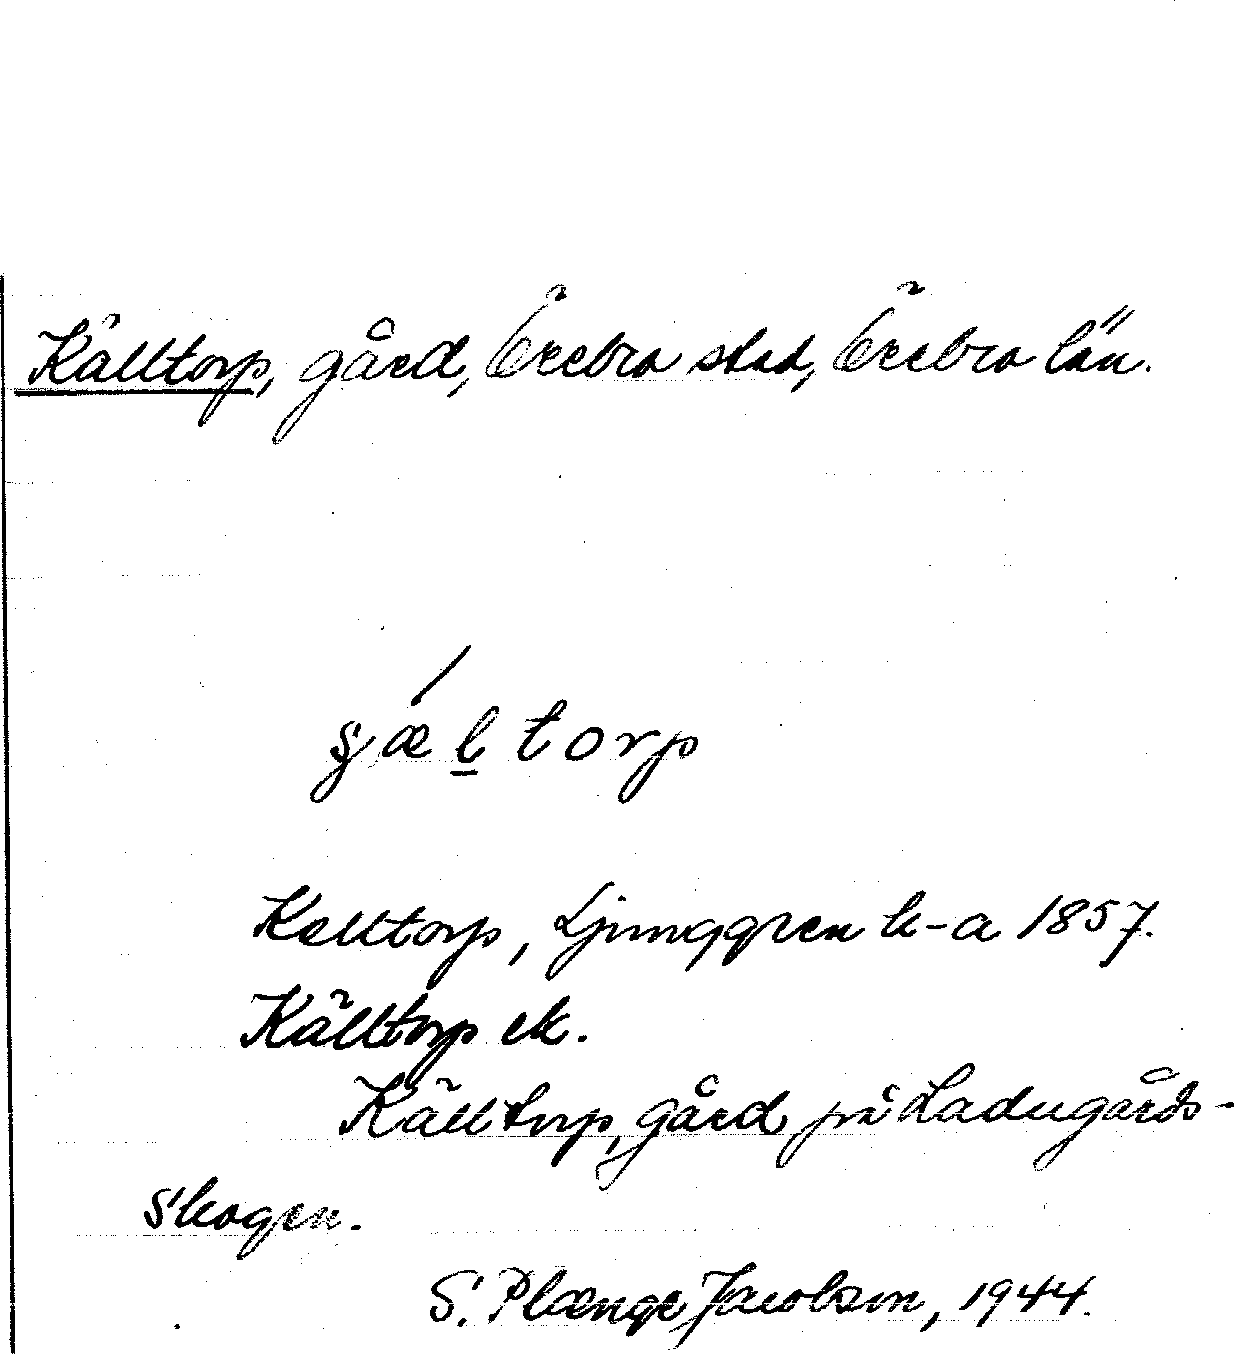 Källtorp, gård, Örebro stad, Örebro län.
Kelltorp, Ljunggren k-a 1857.
Källtorp ek.
Källtorp, gård på Ladugårds-
skogen.
S. Plænge Jacobson, 1944.